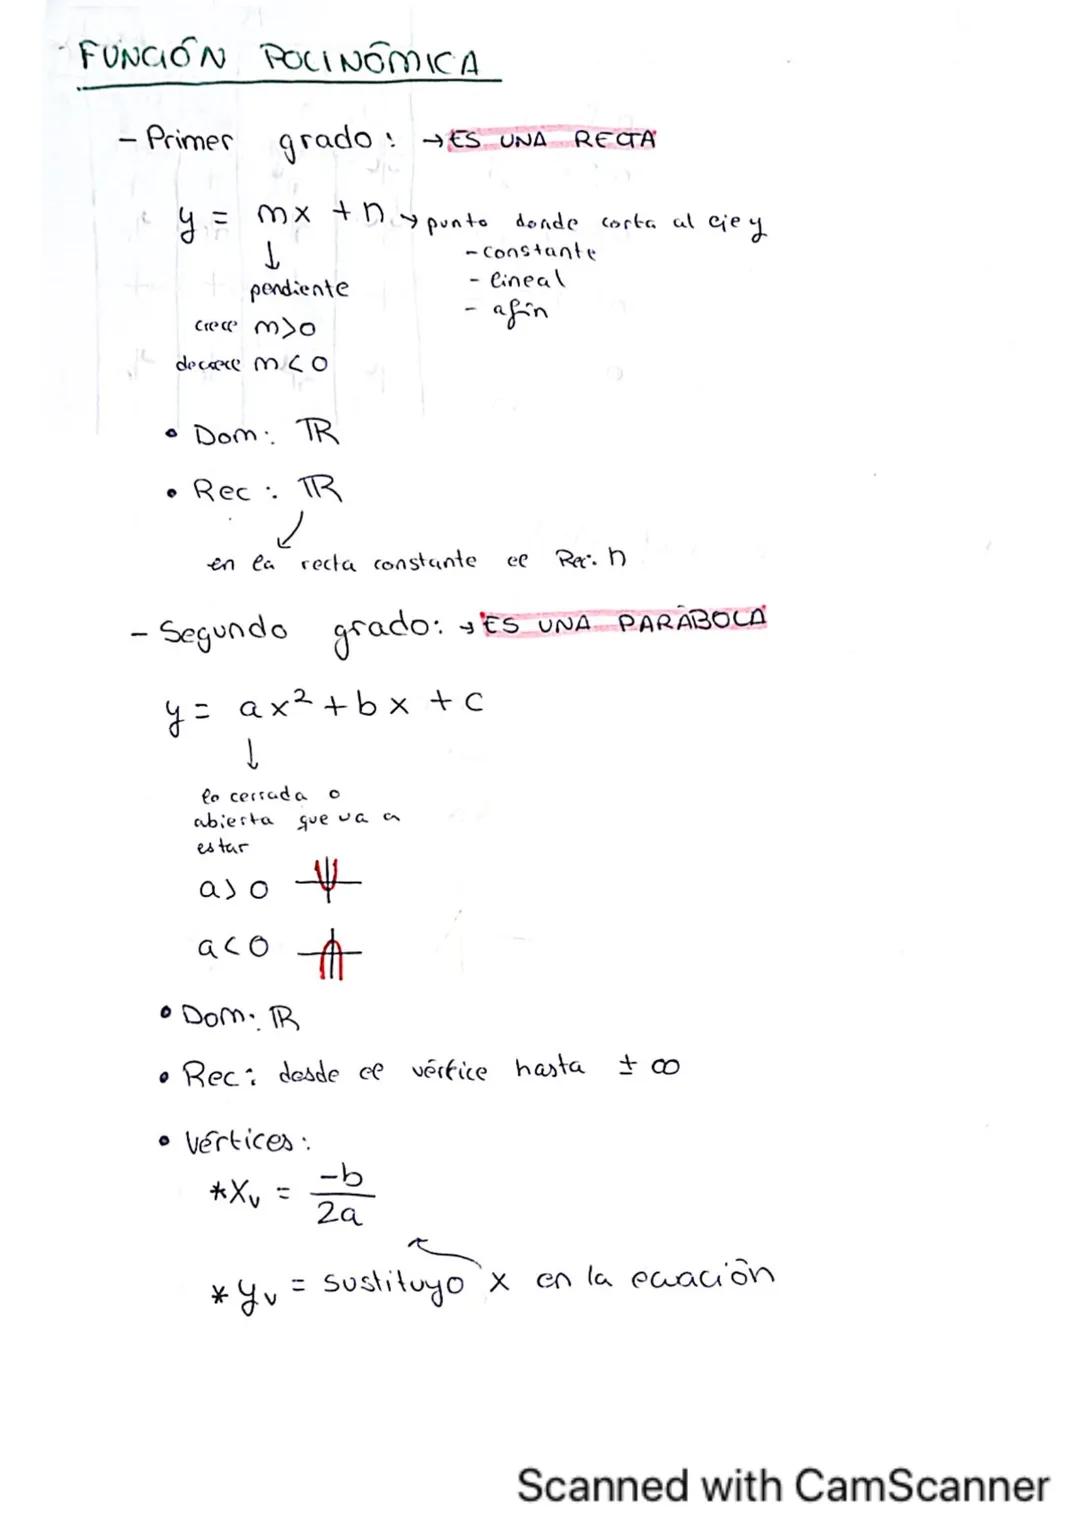 FUNCIÓN POLINÓMICA
- Primer grado: → ES UNA RECTA
y = mx + n → punto donde corta al eje y
↓
- constante
pendiente
- lineal
- afín
crece m>0
decrece m<0
• Dom: ℝ
• Rec: ℝ
en la recta constante el Rec: n
- Segundo grado: → ES UNA PARÁBOLA
y = ax² + bx + c
↓
lo cerrada o
abierta que va a
estar
a>0
a<0
• Dom: ℝ
• Rec: desde el vértice hasta ± ∞
• Vértices:
*Xv = -b/2a
*yv = sustituyo x en la ecuación
Scanned with CamScanner